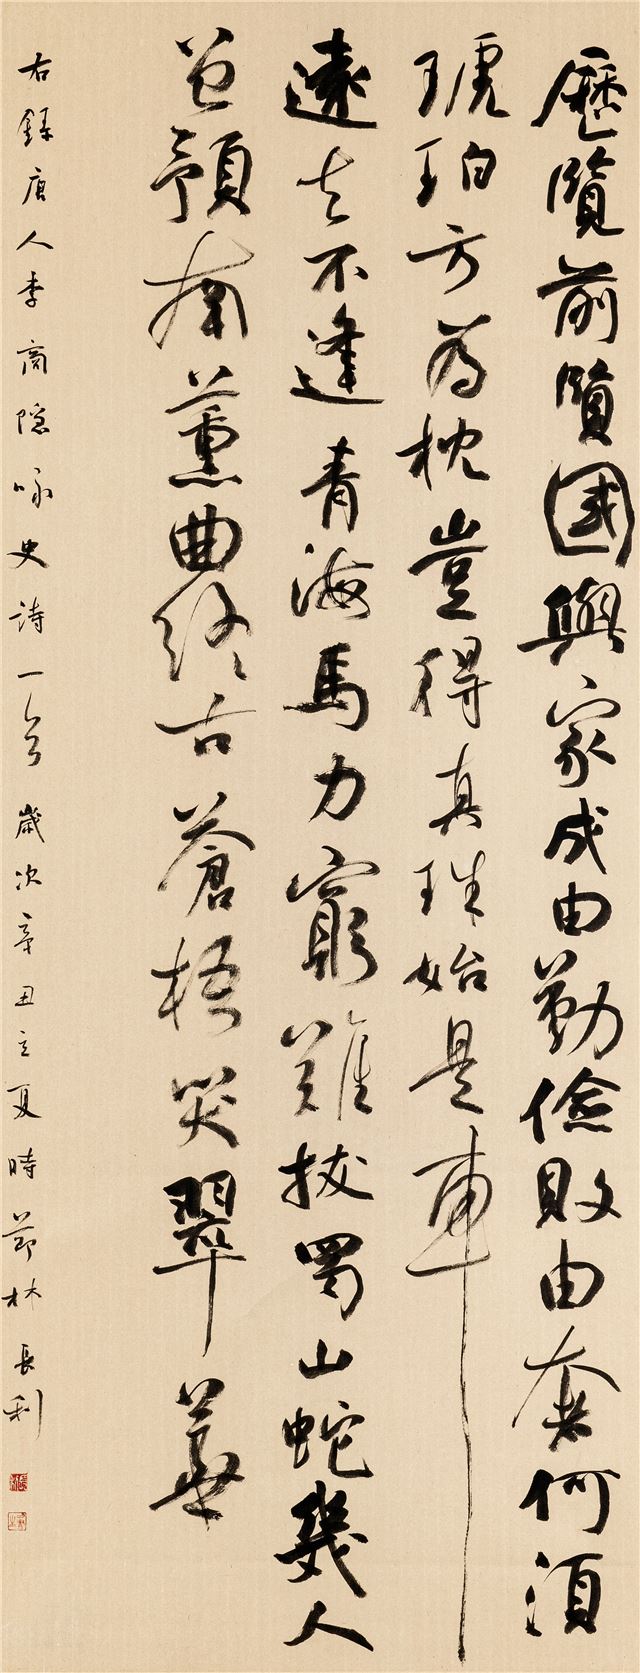 歷覽前賢國與家成由勤儉敗由奢何須
琥珀方為枕豈得真珠始是車
遠去不逢青海馬力窮難拔蜀山蛇幾人
曾預南薰曲終古蒼梧哭翠華
右錄唐人李商隱咏史詩一首歲次辛丑立夏時節林長利